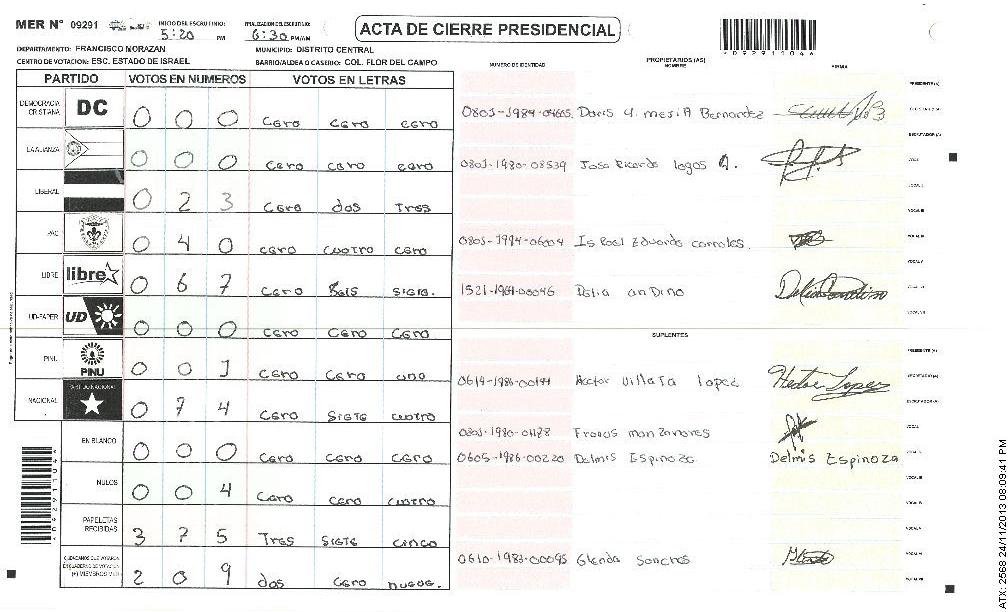 MER N° 09291 INICIO DEL ESCRUTINIO: 5:20 PM FINALIZACION DEL ESCRUTINIO: 6:30 PM/AM
ACTA DE CIERRE PRESIDENCIAL
*0929110 4*
DEPARTAMENTO: FRANCISCO MORAZAN MUNICIPIO: DISTRITO CENTRAL
CENTRO DE VOTACION: ESC. ESTADO DE ISRAEL BARRIO/ALDEA O CASERIO: COL. FLOR DEL CAMPO
PARTIDO VOTOS EN NUMEROS VOTOS EN LETRAS
DEMOCRACIA CRISTIANA DC 0 0 0 cero cero cero
LA ALIANZA 0 0 0 cero cero cero
LIBERAL 0 2 3 cero dos tres
PAC 0 4 0 cero cuatro cero
LIBRE libre 0 6 7 cero seis siete.
UD-FAPER UD 0 0 0 cero cero cero
PINU PINU 0 0 1 cero cero uno
NACIONAL PARTIDO NACIONAL 0 7 4 cero siete cuatro
EN BLANCO 0 0 0 cero cero cero
NULOS 0 0 4 cero cero cuatro
PAPELETAS RECIBIDAS 3 7 5 Tres siete cinco
CIUDADANOS QUE VOTARON EN CUADERNO DE VOTACION (+) MIEMBROS MER 2 0 9 dos cero nueve.
NUMERO DE IDENTIDAD PROPIETARIOS (AS) NOMBRE FIRMA
Doris
Jose Ricardo lagos
0801-1994-06004
1521-1961-00046 Delia andino
SUPLENTES
Hector Villata lopez Hector Lopez
0801-1980-01128
0605-1986-00220 Delmis Espinoza Delmis Espinoza
0610-1983-00095 Glenda Sanches
ATX: 2568 24/11/2013 08:09:41 PM